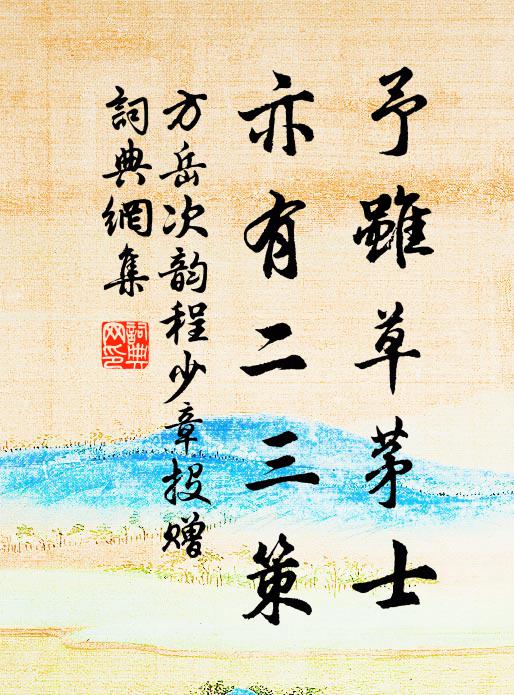 予雖草茅士
亦有二三策
方岳次韵程少章投赠
詞典網集
詞典网印